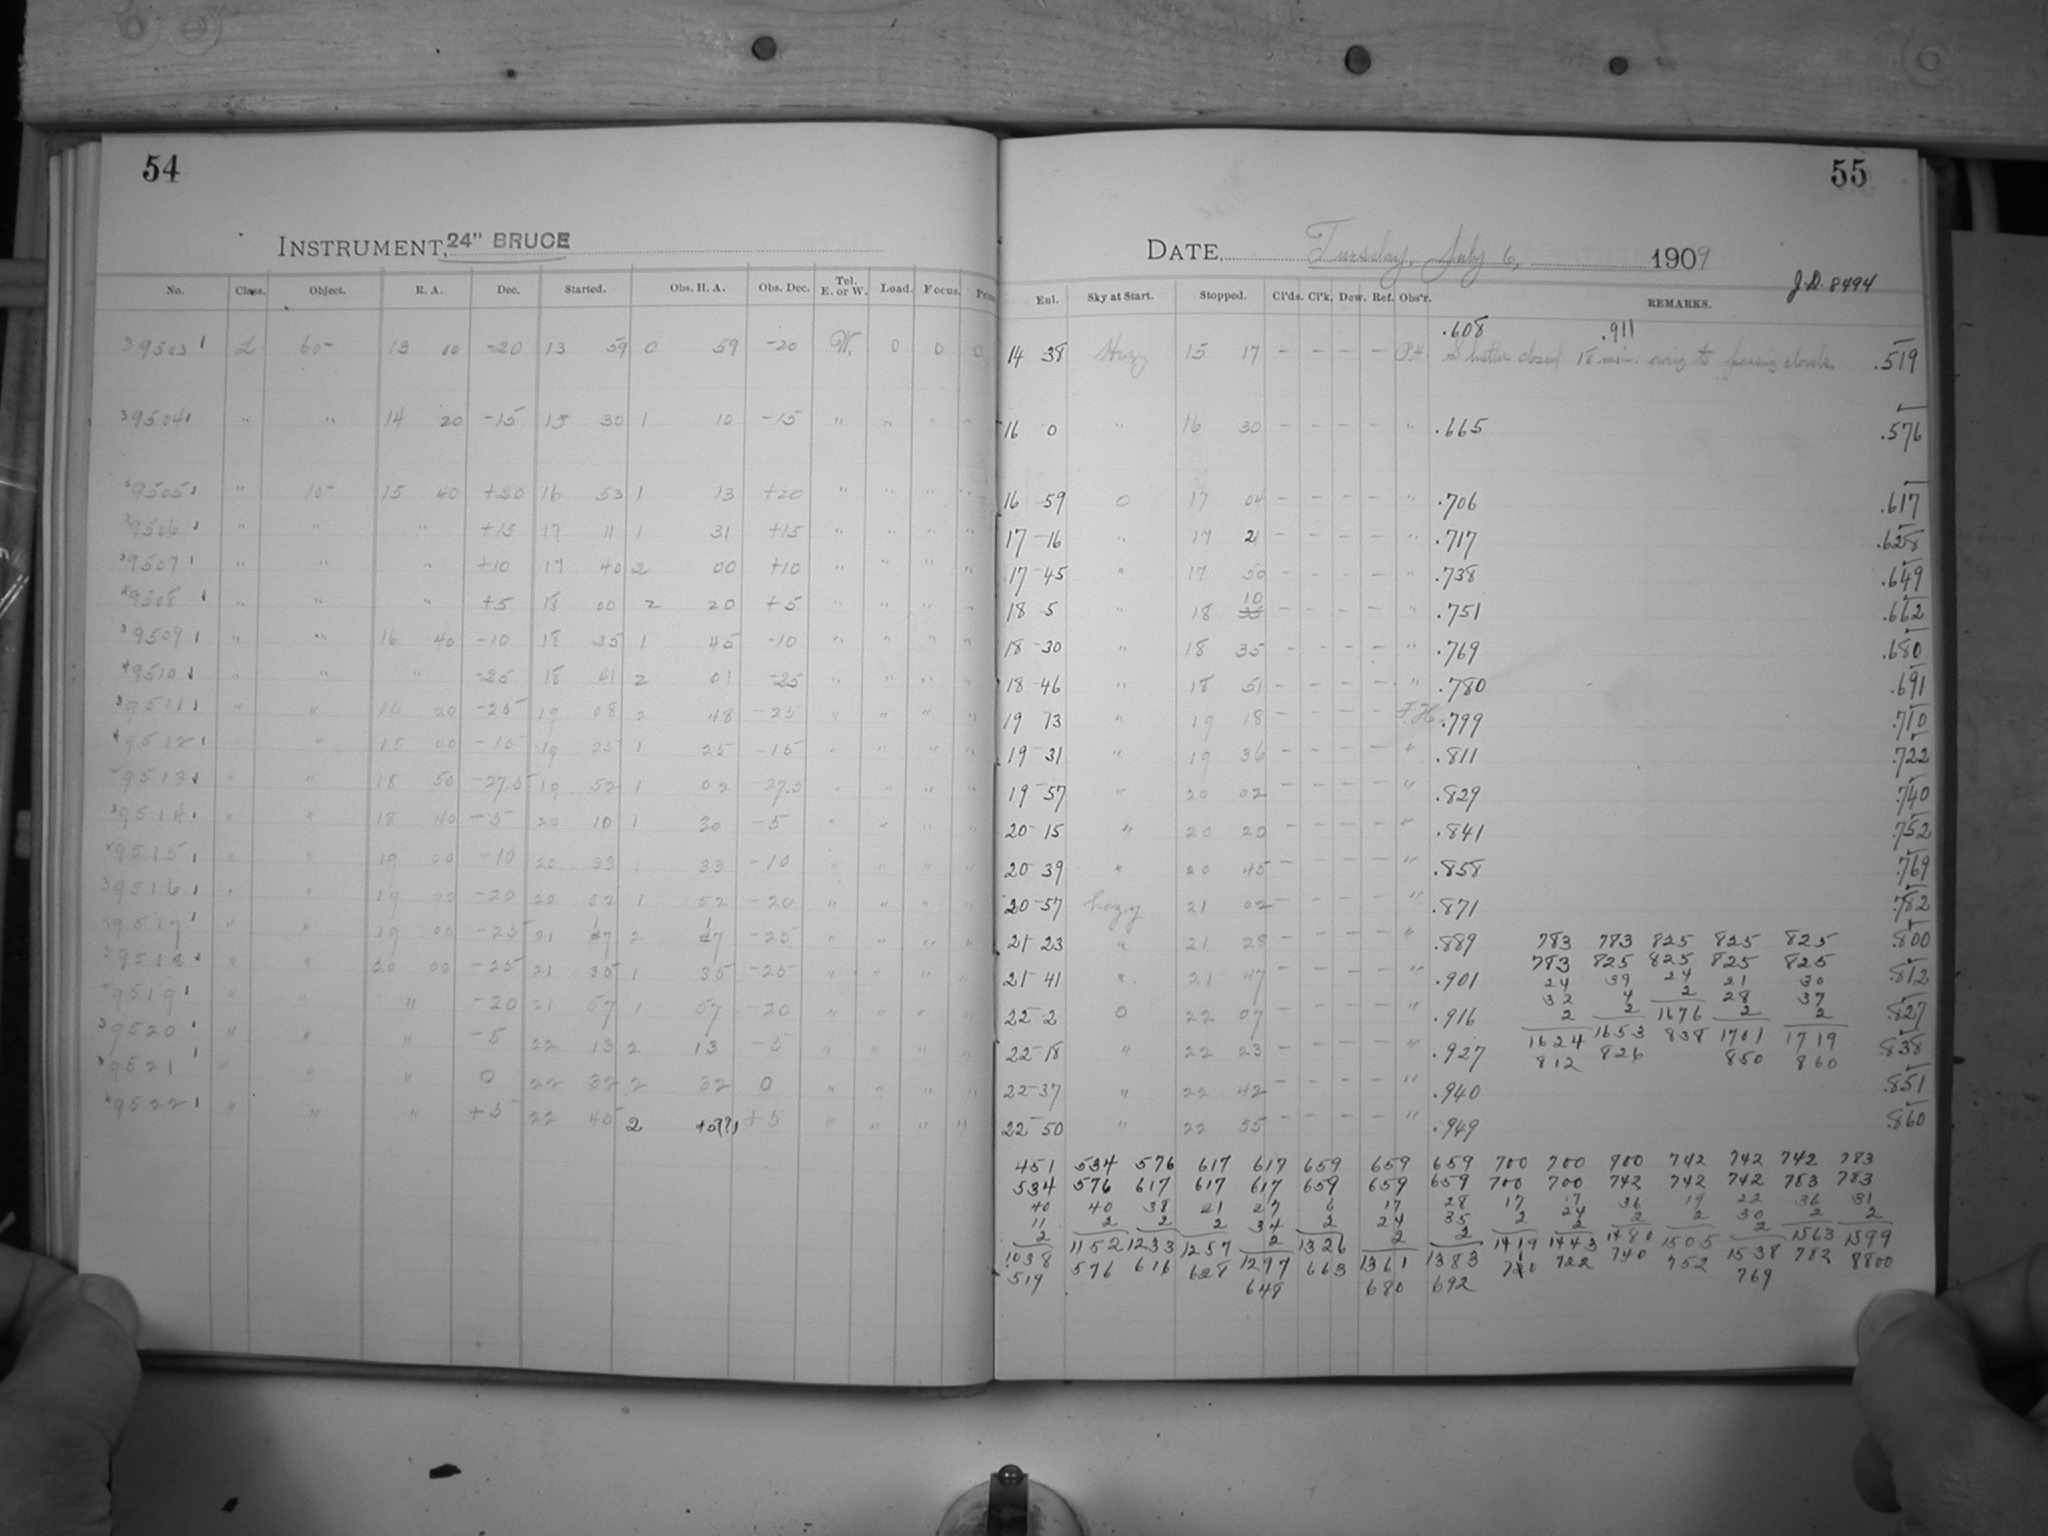 54
INSTRUMENT, 24" BRUCE
No. Class. Object. R. A. Dec. Started. Obs. H. A. Obs. Dec. Tel. E. or W. Load. Focus.
39503 L 60- 13 00 -20 13 59 0 59 -20 W. 0 0 0
39504 " " 14 20 -15 15 30 1 10 -15 " " " "
39505 " 10- 15 40 +20 16 53 1 13 +20 " " " "
9506 " " " +15 17 11 1 31 +15 " " " "
39507 " " " +10 17 40 2 00 +10 " " " "
9508 " " " +5 18 00 2 20 +5 " " " "
39509 " " 16 40 -10 18 25 1 45 -10 " " " "
9510 " " " -25 18 41 2 01 -25 " " " "
39511 " " 16 20 -25 19 08 2 48 -25 " " " "
9512 " " 18 00 -15 19 25 1 25 -15 " " " "
9513 " " 18 50 -27.5 19 52 1 02 -27.5 " " " "
39514 " " 18 40 -5 20 10 1 30 -5 " " " "
9515 " " 19 00 -10 20 33 1 33 -10 " " " "
39516 " " 19 00 -20 20 52 1 52 -20 " " " "
9517 " " 19 00 -25 21 17 2 17 -25 " " " "
39518 " " 20 00 -25 21 35 1 35 -25 " " " "
9519 " " " -20 21 57 1 57 -20 " " " "
39520 " " " -5 22 13 2 13 -5 " " " "
39521 " " " 0 22 32 2 32 0 " " " "
9522 " " " +5 22 45 2 +5 " " " "
55
DATE, Tuesday, July 6, 1909
J.D. 8494
Exl. Sky at Start. Stopped. Cl'ds. Cl'k. Dew. Ref. Obs'r. REMARKS.
.608 .911
14 38 Hazy 15 17 - - - - P.H. Shutter closed 18 min. owing to passing clouds. .519
16 0 " 16 30 - - - - " .665 .576
16 59 0 17 04 - - - - " .706 .617
17-16 " 17 21 - - - - " .717 .628
17-45 " 17 50 - - - - " .738 .649
18 5 " 18 10 - - - - " .751 .662
18-30 " 18 35 - - - - " .769 .680
18-46 " 18 51 - - - - " .780 .691
19 13 " 19 18 - - - - F.H. .799 .710
19-31 " 19 36 - - - - " .811 .722
19-57 " 20 02 - - - - " .829 .740
20-15 " 20 20 - - - - " .841 .752
20 39 " 20 45 - - - - " .858 .769
20-57 hazy 21 02 - - - - " .871 .782
21 23 " 21 28 - - - - " .889 .800
21 41 " 21 47 - - - - " .901 .812
22 2 0 22 07 - - - - " .916 .827
22-18 " 22 23 - - - - " .927 .838
22-37 " 22 42 - - - - " .940 .851
22-50 " 22 55 - - - - " .949 .860
783 783 825 825 825
783 825 825 825 825
24 39 24 21 30
32 4 2 28 37
2 2 1676 2 2
1624 1653 838 1701 1719
812 826 850 860
451 534 576 617 617 659 659 659 700 700 700 742 742 742 783
534 576 617 617 617 659 659 659 700 700 742 742 742 783 783
40 40 38 21 27 6 17 28 17 17 36 19 22 36 31
11 2 2 2 34 2 24 35 2 24 2 2 30 2 2
2 1152 1233 1257 2 1326 2 2 1419 2 1480 1505 2 1563 1599
1038 576 616 628 1297 663 1361 1383 710 1443 740 752 1538 782 8800
519 648 680 692 722 769